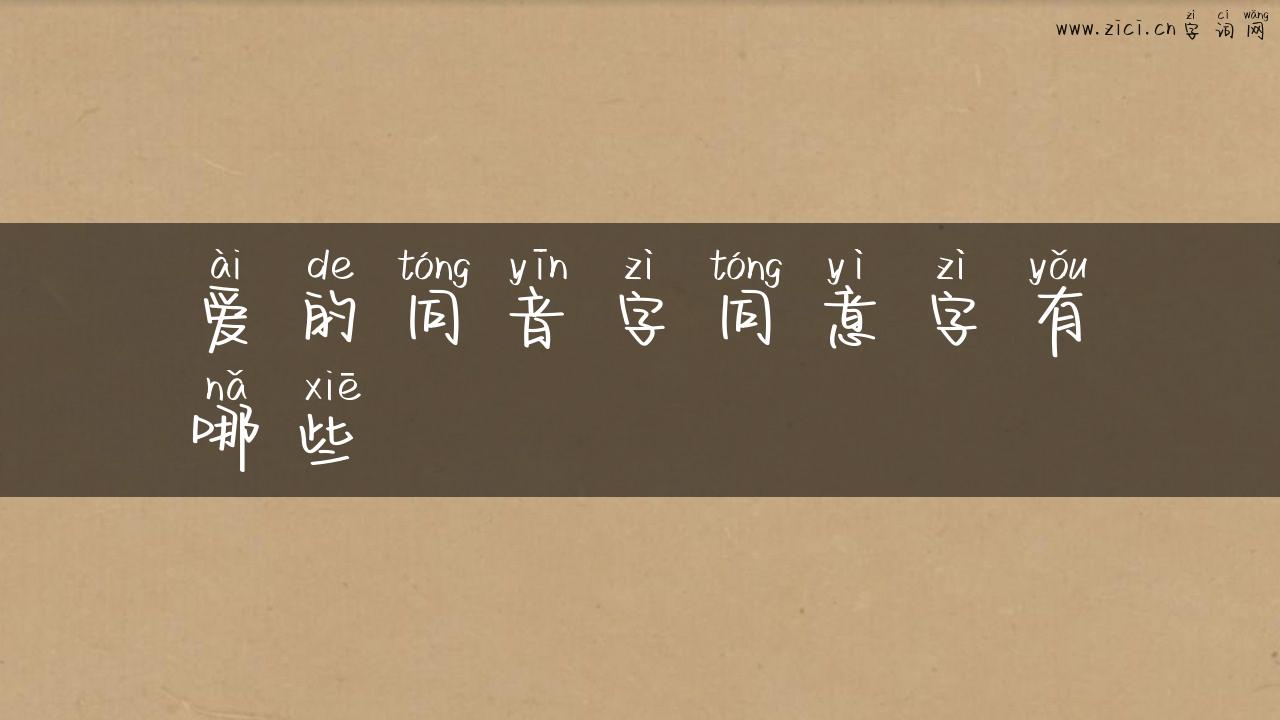 zì cí wǎng
www.zici.cn 字 词 网
ài de tóng yīn zì tóng yì zì yǒu
爱 的 同 音 字 同 意 字 有
nǎ xiē
哪 些